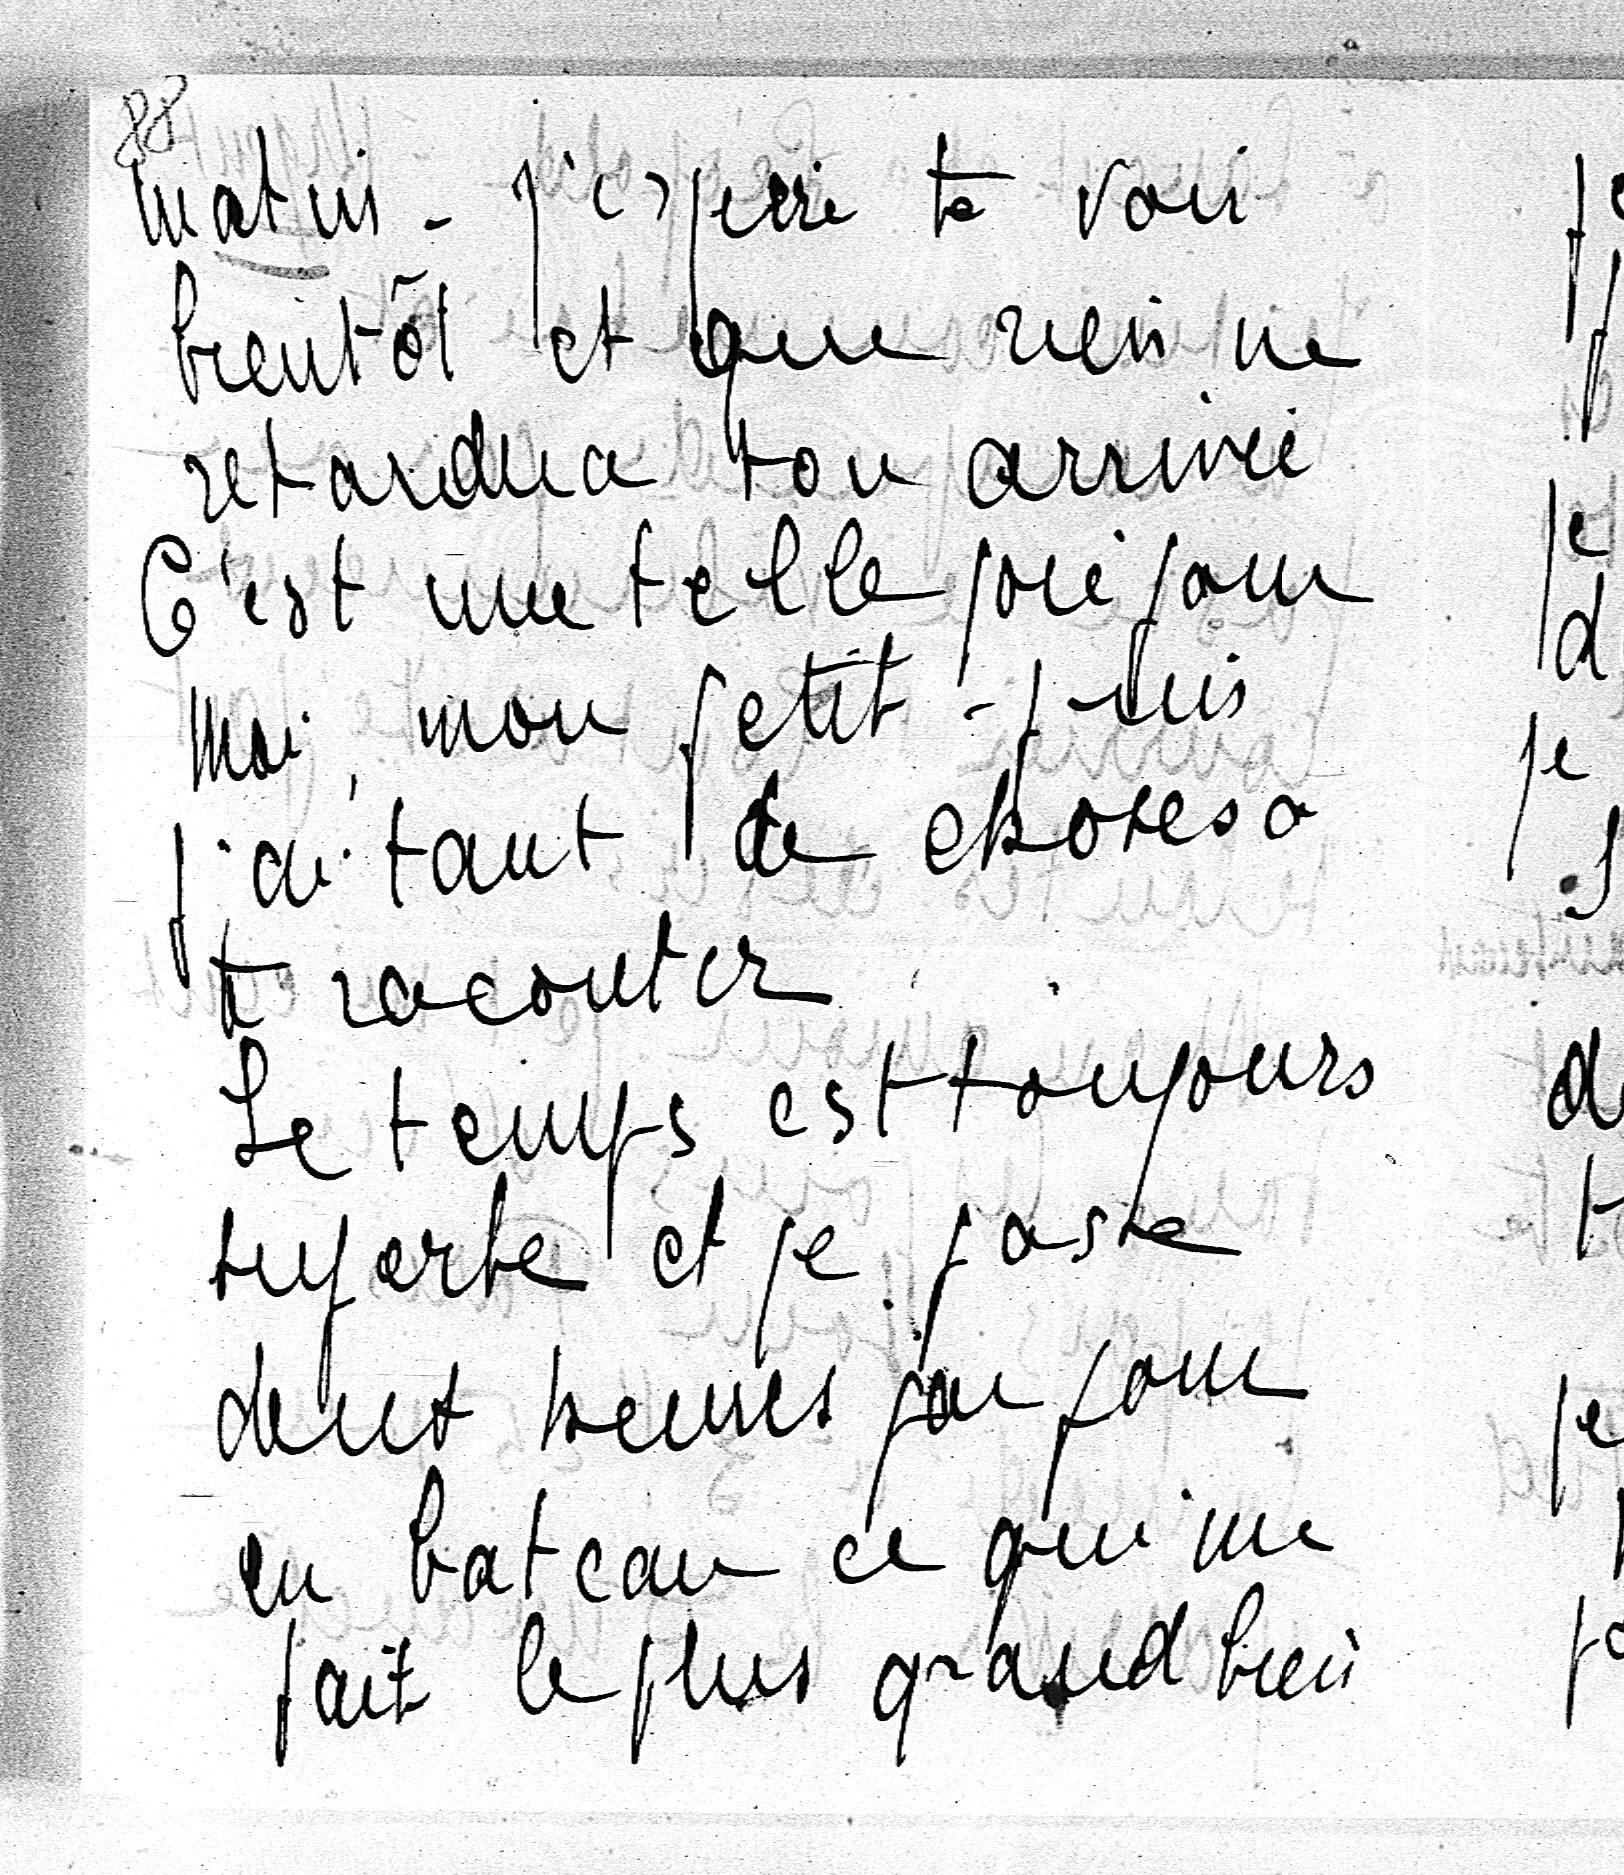 88
matin - j'espère te voir
bientôt et que rien ne
retardera ton arrivée
C'est une telle joie pour
moi, mon petit - puis
j'ai tant de choses a
te raconter
Le temps est toujours
superbe et je passe
deux heures par jour
en bateau ce qui me
fait le plus grand bien